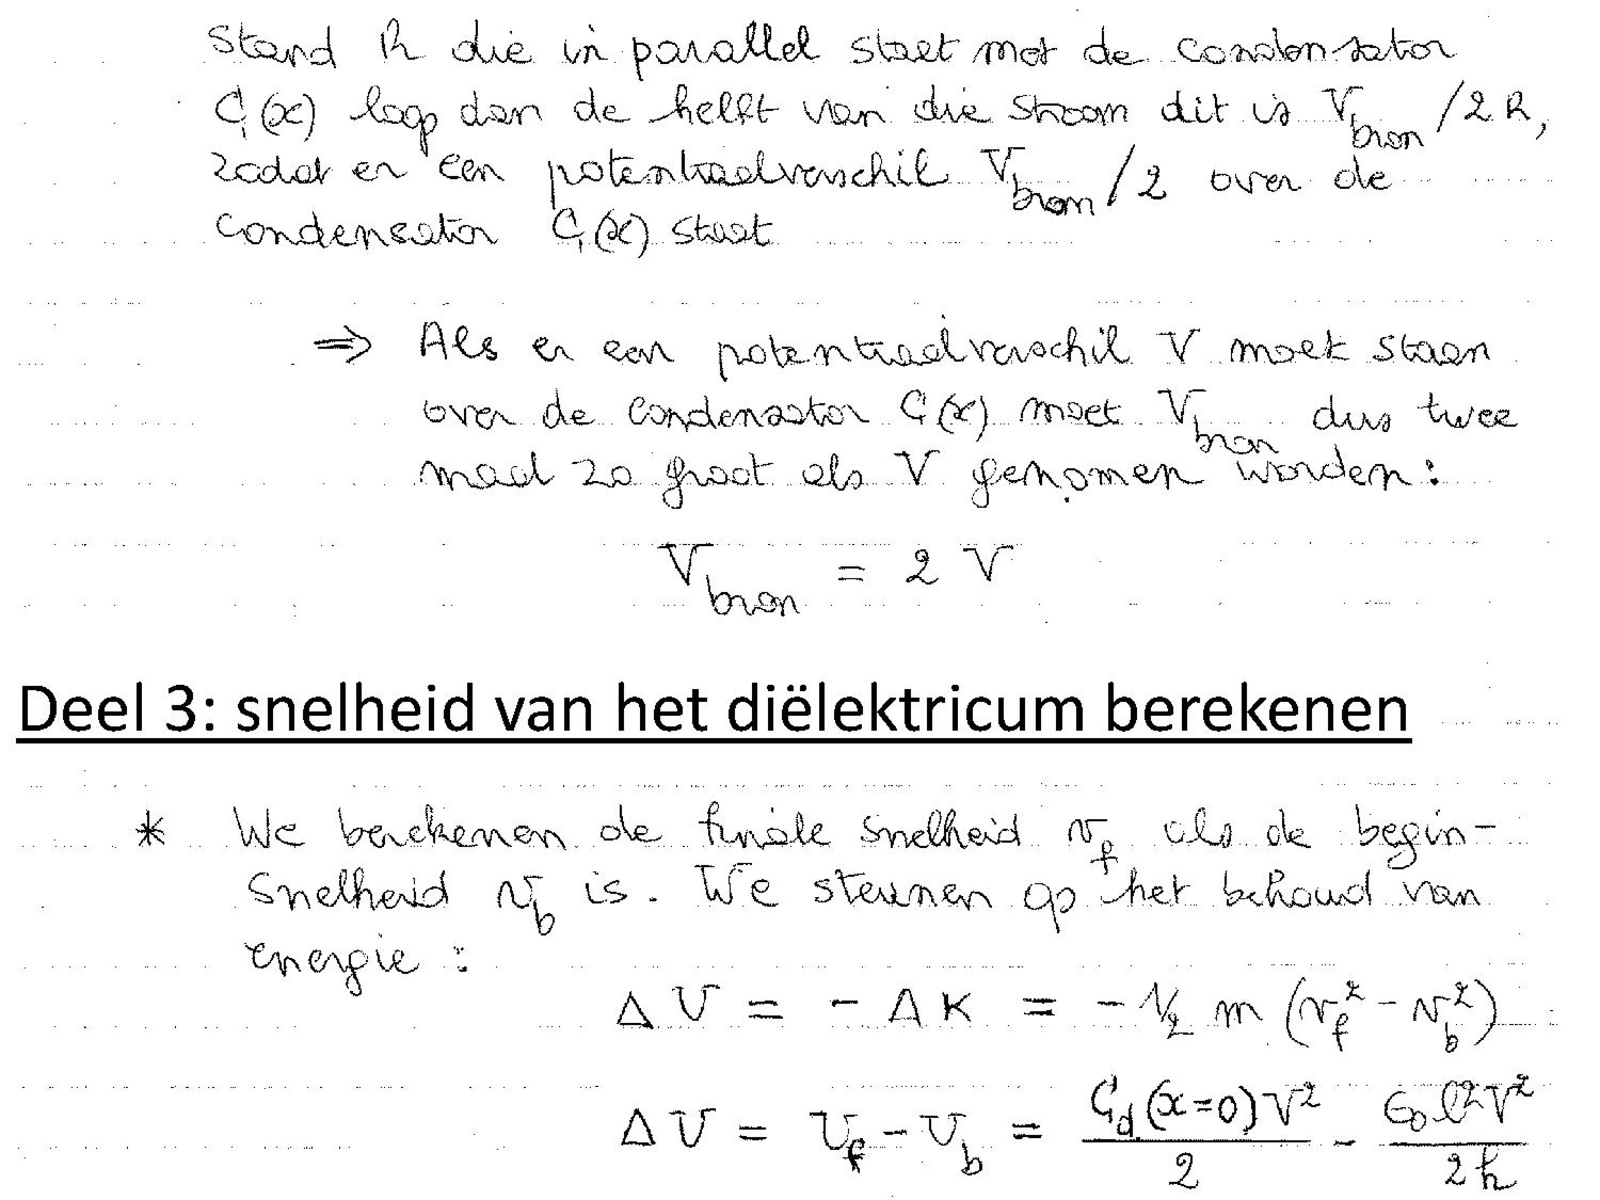 stand R die in parallel staat met de condensator
C(x) loop dan de helft van die stroom dit is V_bron/2R,
zodat er een potentiaalverschil V_bron/2 over de
condensator C(x) staat
⇒ Als er een potentiaalverschil V moet staan
over de condensator C(x) moet V_bron dus twee
maal zo groot als V genomen worden:
V_bron = 2 V
Deel 3: snelheid van het diëlektricum berekenen
* We berekenen de finale snelheid v_f als de begin-
snelheid v_b is. We steunen op het behoud van
energie:
ΔU = - ΔK = - 1/2 m (v_f² - v_b²)
ΔU = U_f - U_b = C_d(x=0)V²/2 - ϵ₀l²V²/2h